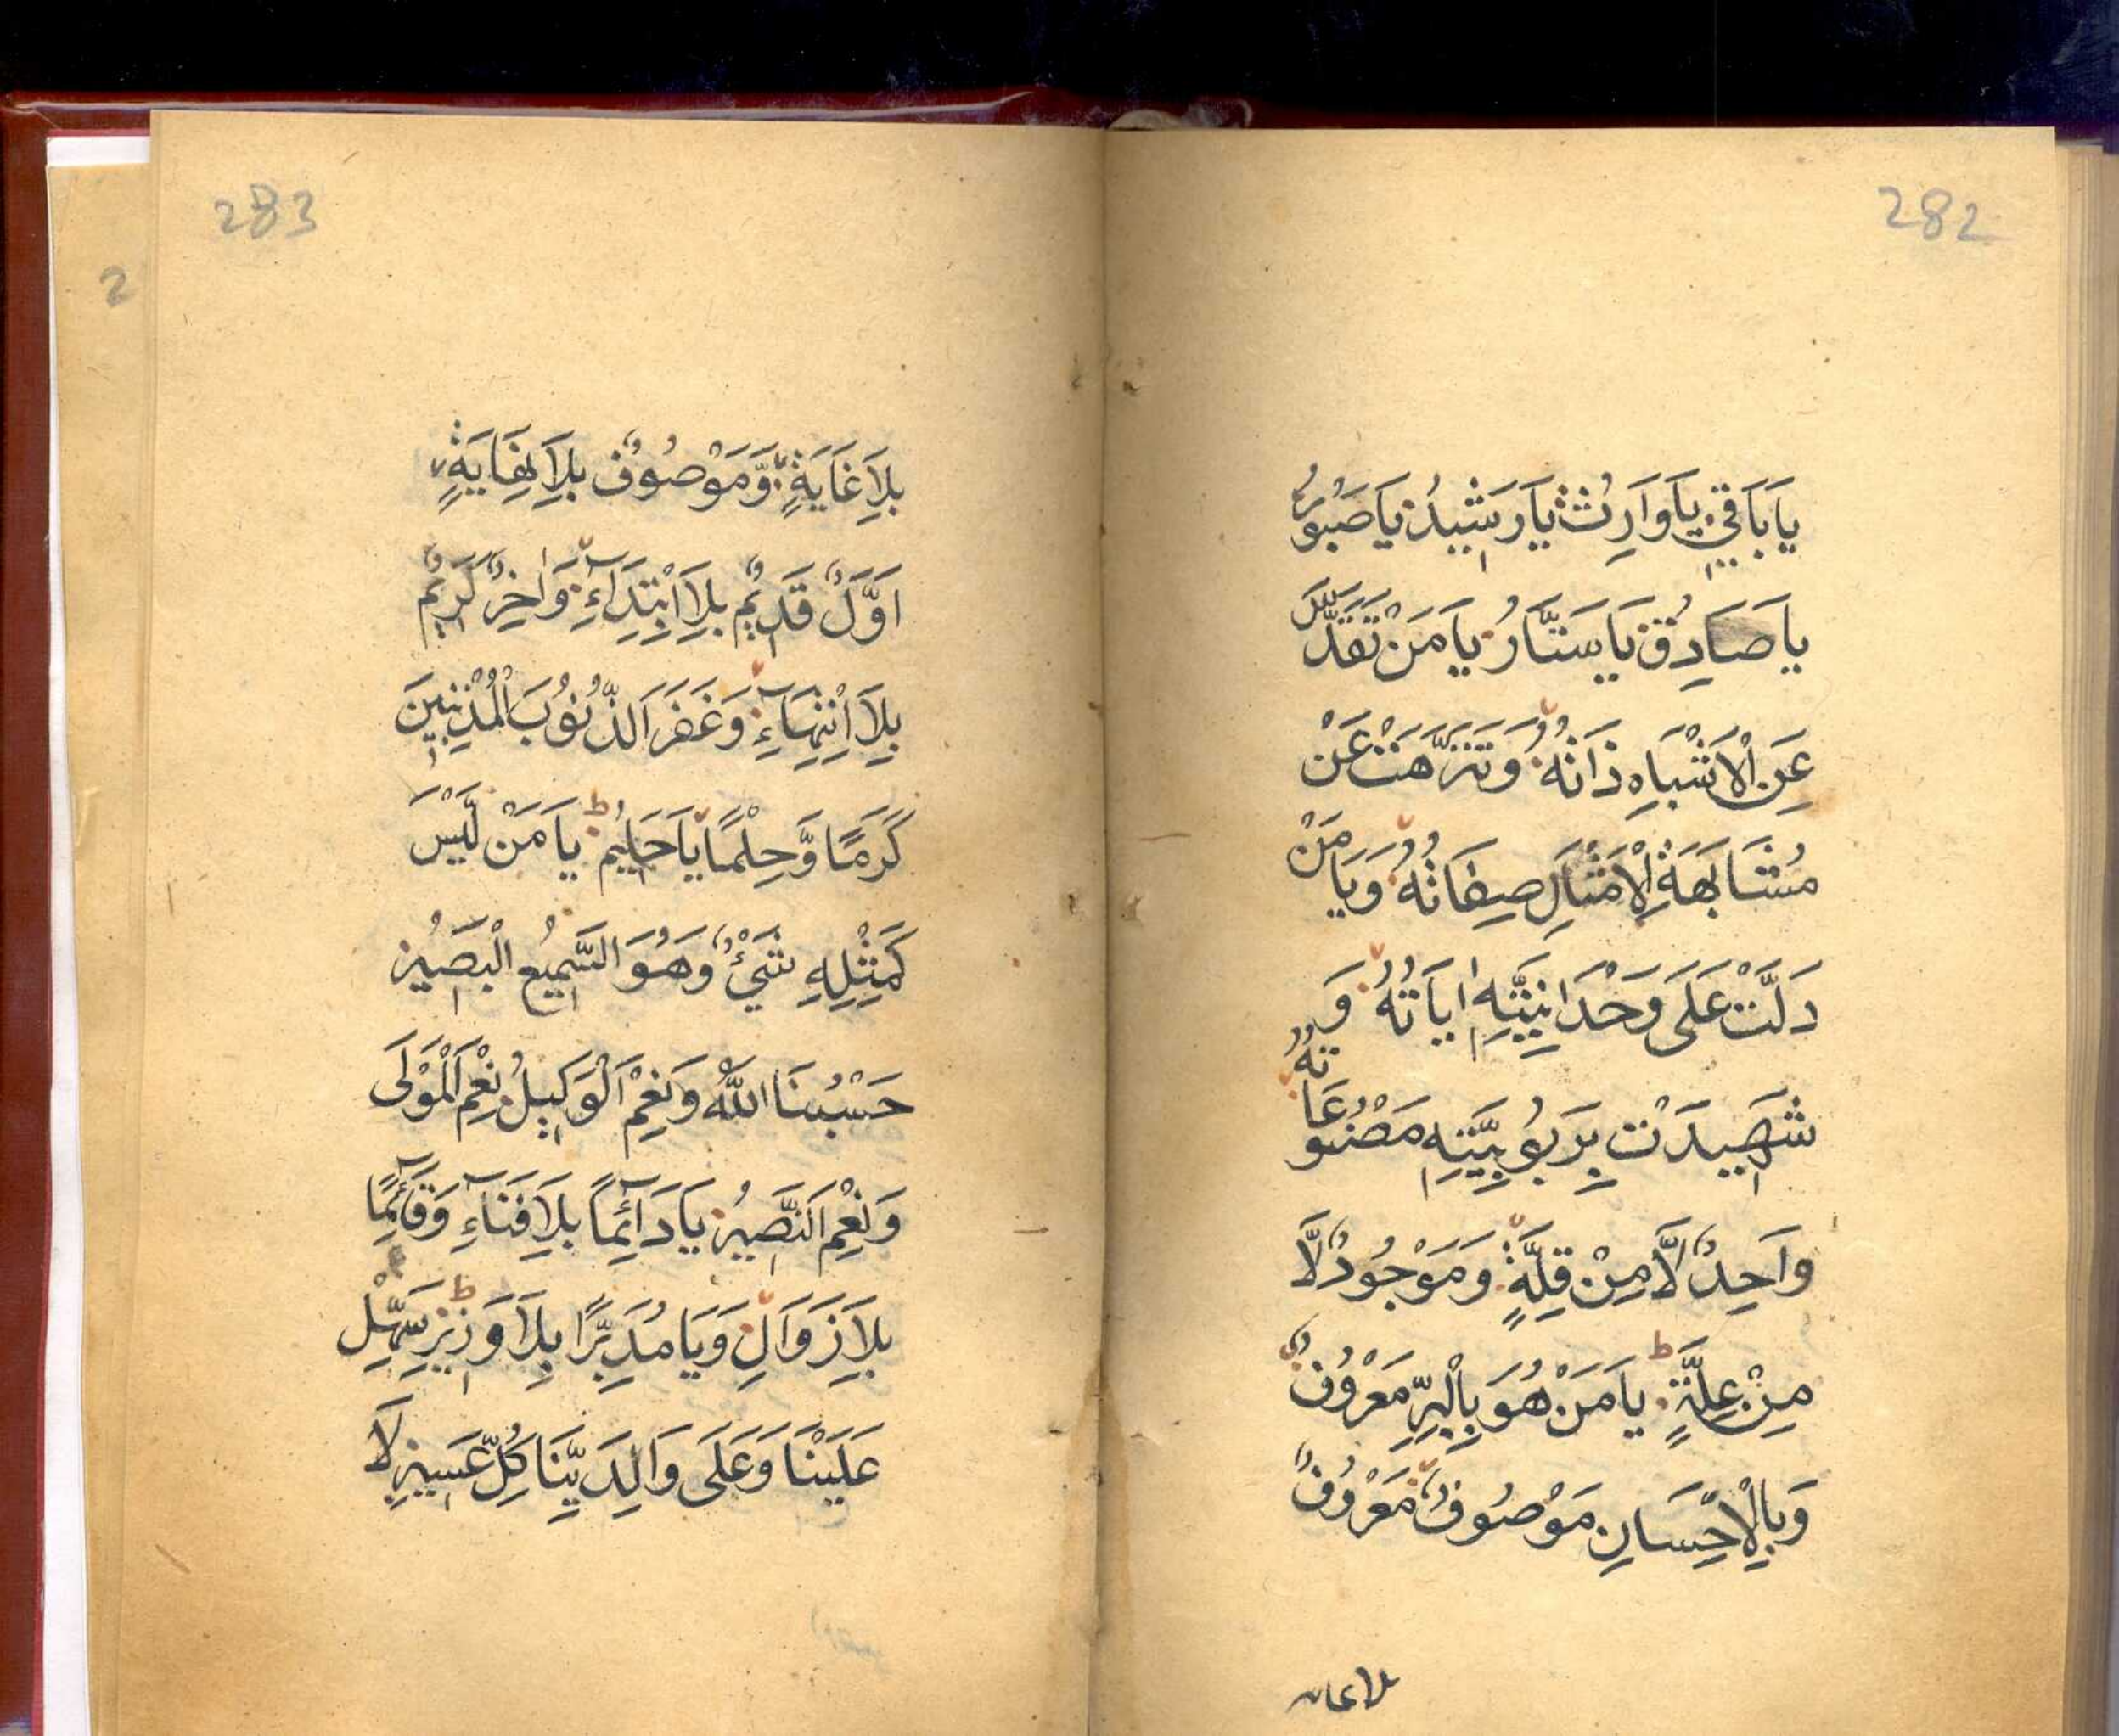 282
يَا بَاقِي يَا وَارِثُ يَا رَشِيدُ يَا صَبُورُ
يَا صَادِقُ يَا سَتَّارُ يَا مَنْ تَقَدَّسَ
عَنِ الْاَشْبَاهِ ذَاتُهُ وَتَنَزَّهَتْ عَنْ
مُشَابَهَةِ الْاَمْثَالِ صِفَاتُهُ وَيَا مَنْ
دَلَّتْ عَلَى وَحْدَانِيَّتِهِ اٰيَاتُهُ وَ
شَهِدَتْ بِرَبُوبِيَّتِهِ مَصْنُوعَاتُهُ
وَاحِدٌ لَّا مِنْ قِلَّةٍ وَمَوْجُودٌ لَّا
مِنْ عِلَّةٍ يَا مَنْ هُوَ بِالْبِرِّ مَعْرُوفٌ
وَبِالْاِحْسَانِ مَوْصُوفٌ مَعْرُوفٌ
بلاغايه
283
بِلَا غَايَةٍ وَّمَوْصُوفٌ بِلَا نِهَايَةٍ
اَوَّلٌ قَدِيمٌ بِلَا ابْتِدَاءٍ وَاٰخِرٌ كَرِيمٌ
بِلَا اِنْتِهَاءٍ وَغَفَرَ الذُّنُوبَ الْمُذْنِبِينَ
كَرَمًا وَّحِلْمًا يَا حَلِيمُ يَا مَنْ لَّيْسَ
كَمِثْلِهِ شَيْءٌ وَهُوَ السَّمِيعُ الْبَصِيرُ
حَسْبُنَا اللهُ وَنِعْمَ الْوَكِيلُ نِعْمَ الْمَوْلَى
وَنِعْمَ النَّصِيرُ يَا دَآئِمًا بِلَا فَنَآءٍ وَقَآئِمًا
بِلَا زَوَالٍ وَيَا مُدَبِّرًا بِلَا وَزِيرٍ سَهِّلْ
عَلَيْنَا وَعَلَى وَالِدَيْنَا كُلَّ عَسِيرٍ لَا